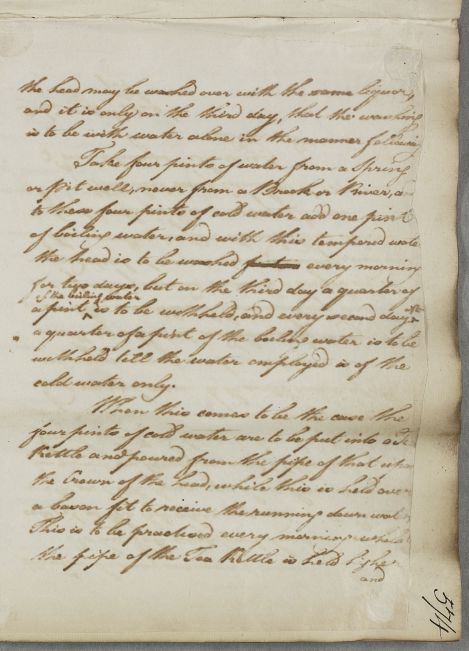 the head may be washed over with the same liquor,
and it is only on the third day, that the washing
is to be with water alone in the manner following
Take four pints of water from a Spring
or Pit well, never from a Brook or River, a
to these four pints of cold water add one pint
of boiling water, and with this tempered wate
the head is to be washed every morning
for two days, but on the third day a quarter of
of the boiling water
a pint ^ is to be withheld, and every second day
a quarter of a pint of the boiling water is to be
withheld till the water employed is of the
cold water only.
When this comes to be the case the
four pints of cold water are to be put into a Te
Kettle and poured from the pipe of that upon
the Crown of the head, while this is held over
a bason fit to receive the running down water
This is to be practised every morning
the pipe of the Tea Kettle is held higher
and